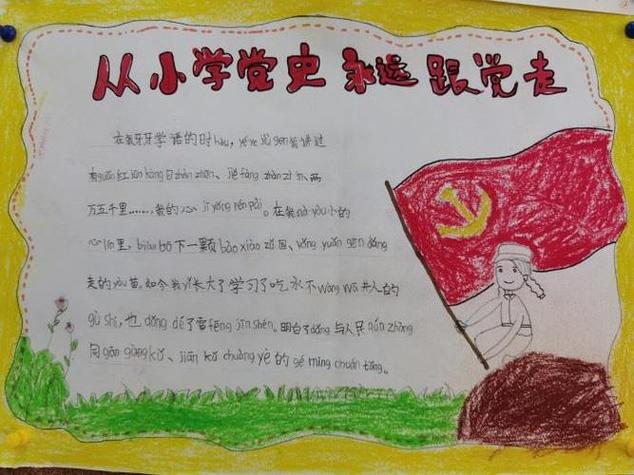 从小学党史 永远跟党走
在我牙牙学语的时hòu，yéye 就gěn我讲过
有guān kàng日zhàn zhēn、jiě fàng zhàn zhēn、两
万五千里……，我的心jī yáng pēn pài。在我nà yòu小的
心lín里，biàn bō下一颗bào xiào zǔ国、yǒng yuǎn gēn dǎng
走的yòu苗。如今我长大了学习了吃水不wàng wā井人的
gù shi，也dǒng dé了雷fēng jīn shén。明白了dǎng与人民qún zhòng
同gān gòng kǔ、jiān kǔ chuàng yè的gé mìng chuán tǒng。